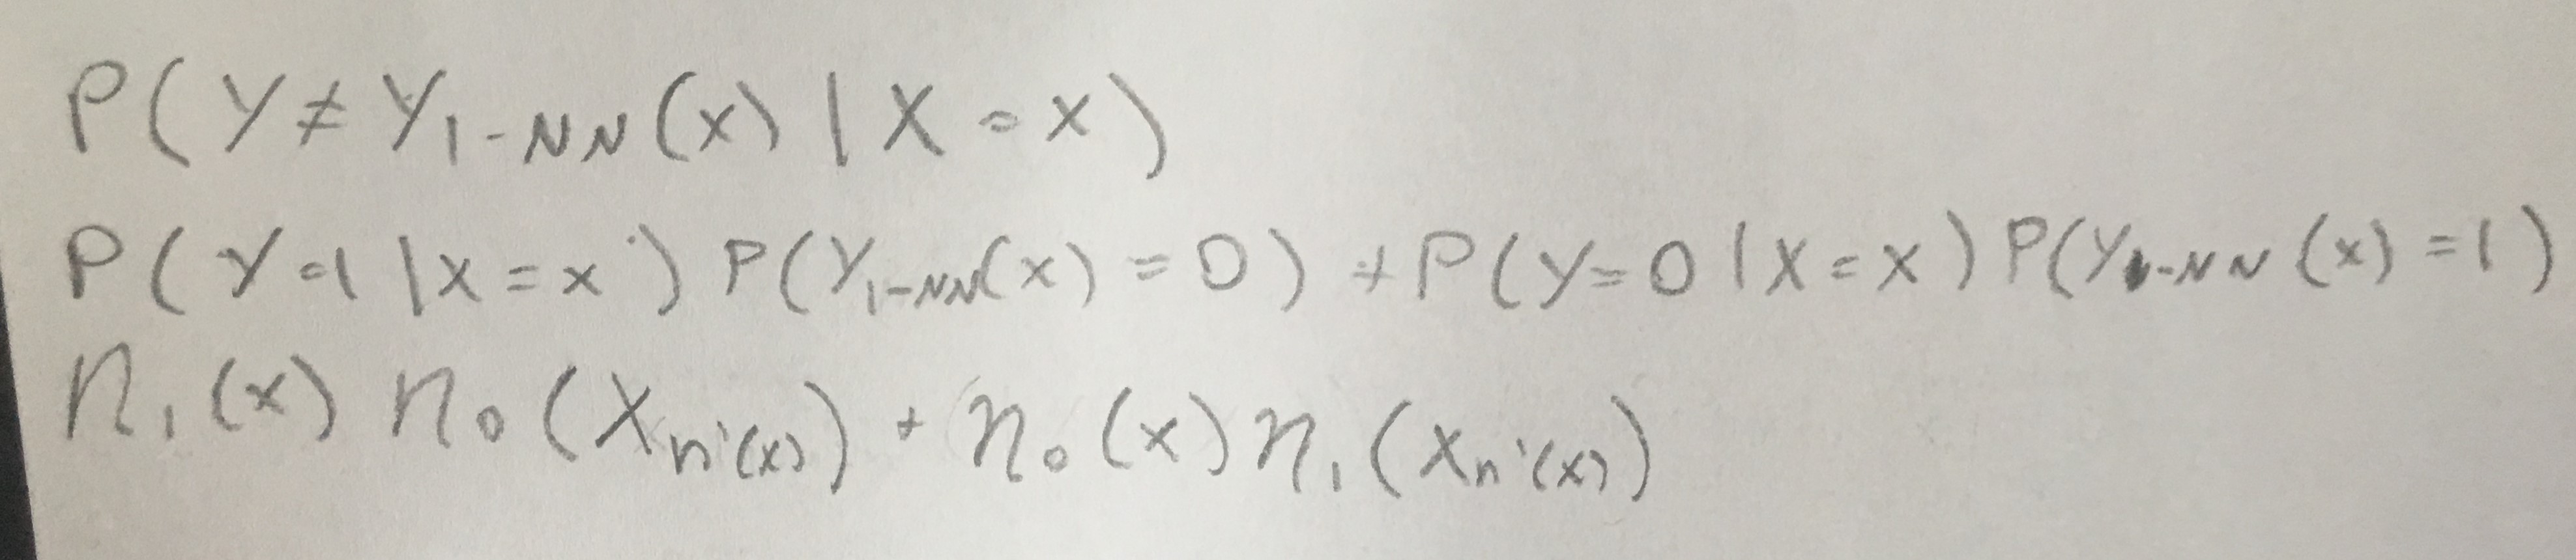 P(Y≠Y₁₋NN(x) | X = x)
P(Y=1 | X = x) P(Y₁₋NN(x) = 0) + P(Y=0 | X = x) P(Y₁₋NN(x) = 1)
η₁(x) η₀(X_n'(x)) + η₀(x) η₁(X_n'(x))